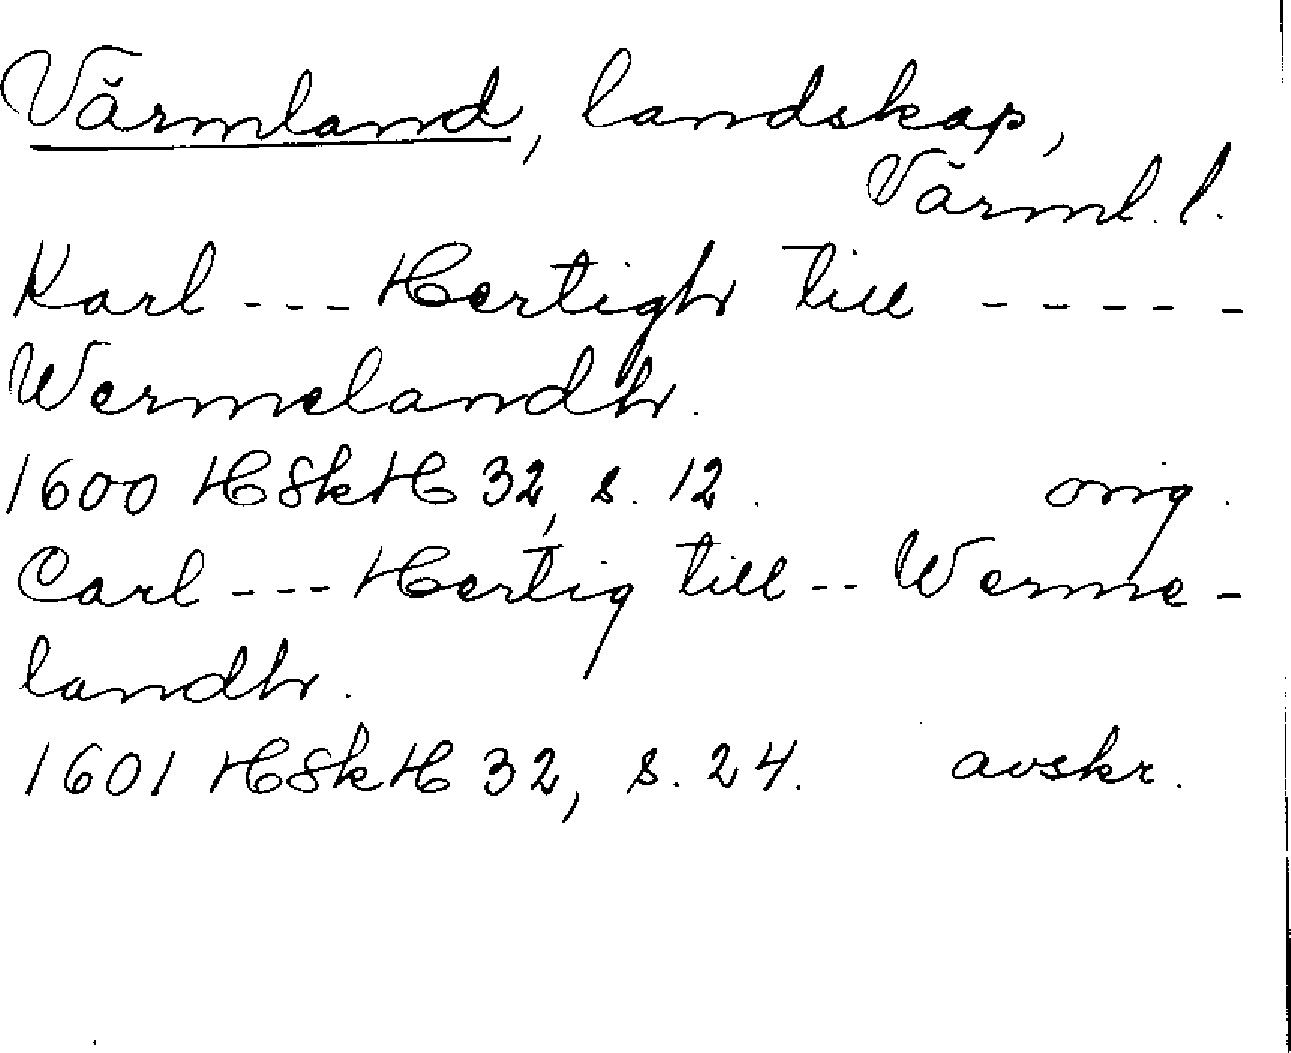 Värmland, landskap,
Värml. l.
Karl --- Hertigh till -----
Wermelandh.
1600 HSkH 32, s. 12. orig.
Carl --- Hertig till -- Werme-
landh.
1601 HSkH 32, s. 24. avskr.